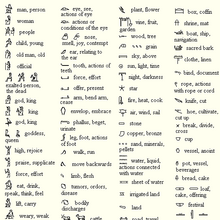 man, person
woman
people
child, young
old man, old
official
exalted person,
the dead
god, king
king
god, king
goddess,
queen
high, rejoice
praise, supplicate
force, effort
eat, drink,
speak, think, feel
lift, carry
weary, weak
eye, see,
actions of eye
actions or
conditions of the eye
nose,
smell, joy, contempt
ear, relating to
the ear
tooth, actions of
teeth
force, effort
offer, present
arm, bend arm,
cease
envelop, embrace
phallus, beget,
urinate
leg, foot, actions
of foot
walk, run
move backwards
limb, flesh
tumors, odors,
disease
bodily
discharges
cattle
plant, flower
vine, fruit,
garden
wood, tree
grain
sky, above
sun, light, time
night, darkness
star
fire, heat, cook
air, wind, sail
stone
copper, bronze
sand, minerals,
pellets
water, liquid,
actions connected
with water
sheet of water
irrigated land
land
road, travel
box, coffin
shrine, mat
boat, ship,
navigation
sacred bark
clothe, linen
bind, document
rope, actions
with rope or cord
knife, cut
hoe, cultivate,
cut up
break, divide,
cross
cup
vessel, anoint
pot, vessel,
beverages
bread, cake
loaf,
cake, offering
festival